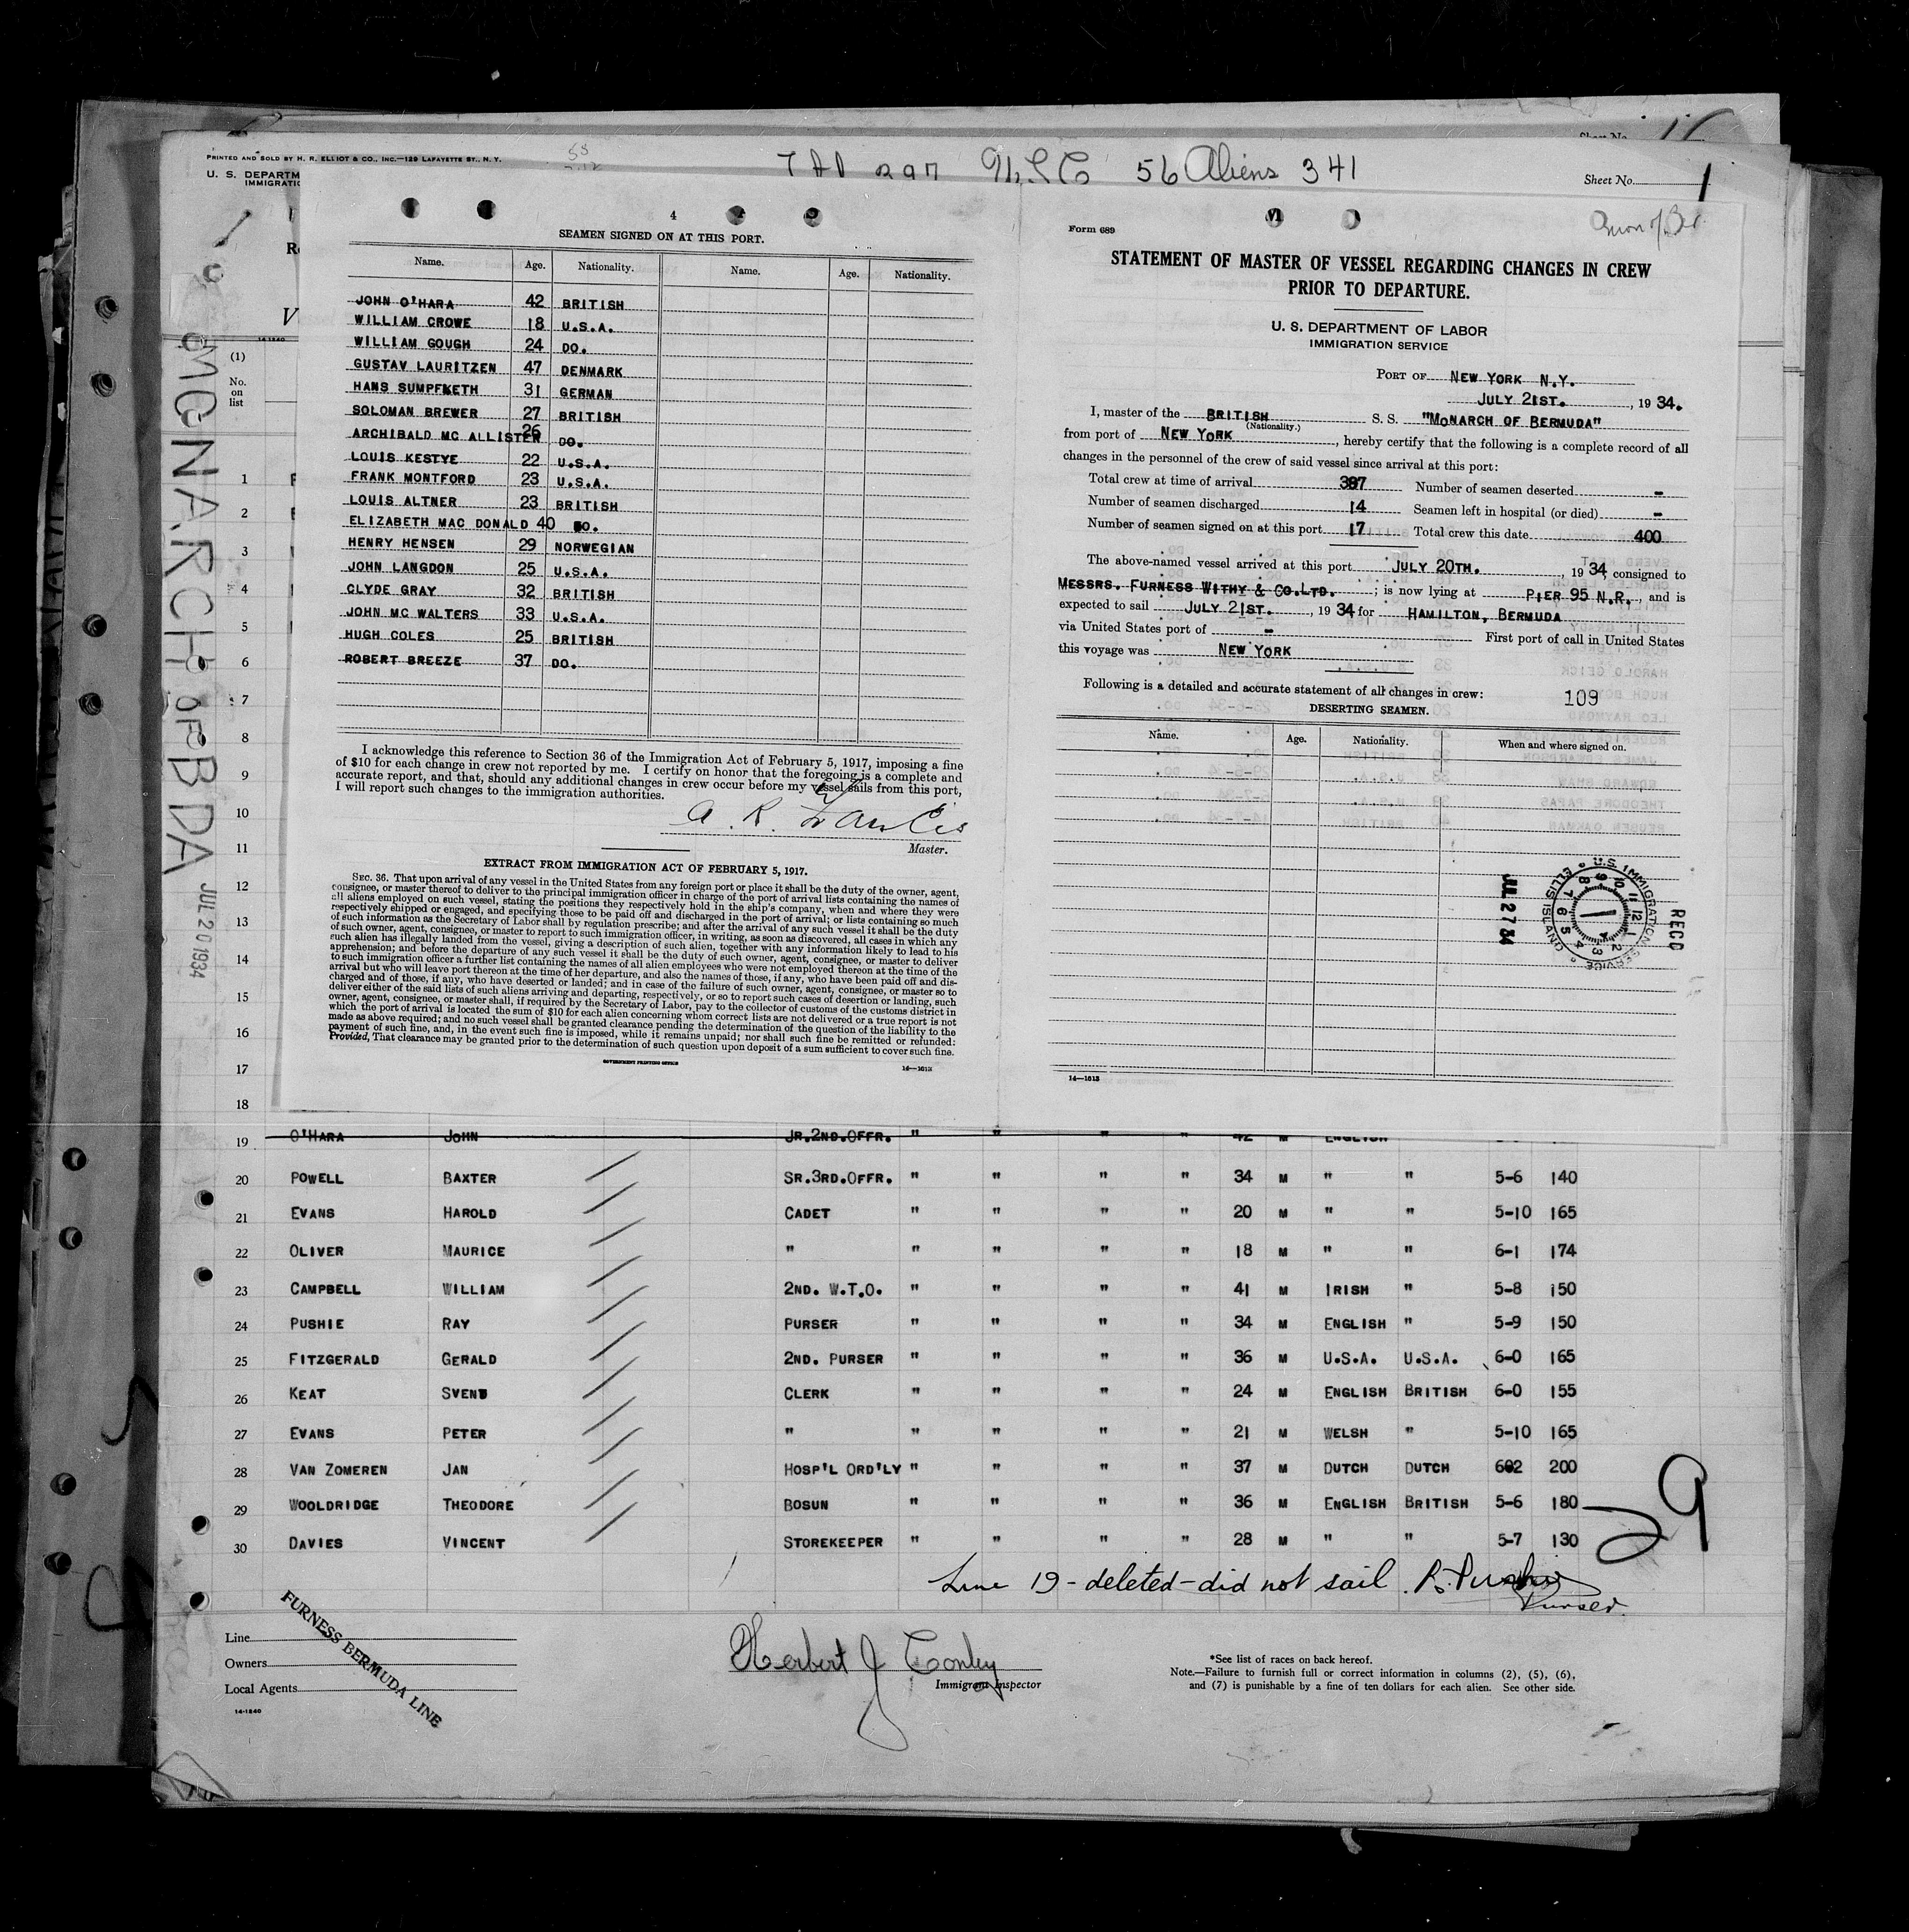 PRINTED AND SOLD BY H. R. ELLIOT & CO., INC.—129 LAFAYETTE ST., N. Y.
U. S. DEPARTM
IMMIGRATIC
56 Aliens 341
Sheet No. 1
MONARCH OF BDA
JUL 20 1934
4
SEAMEN SIGNED ON AT THIS PORT.
Name. Age. Nationality. Name. Age. Nationality.
JOHN O'HARA 42 BRITISH
WILLIAM CROWE 18 U.S.A.
WILLIAM GOUGH 24 DO.
GUSTAV LAURITZEN 47 DENMARK
HANS SUMPFLETH 31 GERMAN
SOLOMAN BREWER 27 BRITISH
ARCHIBALD MC ALLISTER 26 DO.
LOUIS KESTYE 22 U.S.A.
FRANK MONTFORD 23 U.S.A.
LOUIS ALTNER 23 BRITISH
ELIZABETH MAC DONALD 40 DO.
HENRY HENSEN 29 NORWEGIAN
JOHN LANGDON 25 U.S.A.
CLYDE GRAY 32 BRITISH
JOHN MC WALTERS 33 U.S.A.
HUGH COLES 25 BRITISH
ROBERT BREEZE 37 DO.
I acknowledge this reference to Section 36 of the Immigration Act of February 5, 1917, imposing a fine
of $10 for each change in crew not reported by me. I certify on honor that the foregoing is a complete and
accurate report, and that, should any additional changes in crew occur before my vessel sails from this port,
I will report such changes to the immigration authorities.
A. R.
Master.
EXTRACT FROM IMMIGRATION ACT OF FEBRUARY 5, 1917.
SEC. 36. That upon arrival of any vessel in the United States from any foreign port or place it shall be the duty of the owner, agent,
consignee, or master thereof to deliver to the principal immigration officer in charge of the port of arrival lists containing the names of
all aliens employed on such vessel, stating the positions they respectively hold in the ship's company, when and where they were
respectively shipped or engaged, and specifying those to be paid off and discharged in the port of arrival; or lists containing so much
of such information as the Secretary of Labor shall by regulation prescribe; and after the arrival of any such vessel it shall be the duty
of such owner, agent, consignee, or master to report to such immigration officer, in writing, as soon as discovered, all cases in which any
such alien has illegally landed from the vessel, giving a description of such alien, together with any information likely to lead to his
apprehension; and before the departure of any such vessel it shall be the duty of such owner, agent, consignee, or master to deliver
to such immigration officer a further list containing the names of all alien employees who were not employed thereon at the time of the
arrival but who will leave port thereon at the time of her departure, and also the names of those, if any, who have been paid off and dis-
charged and of those, if any, who have deserted or landed; and in case of the failure of such owner, agent, consignee, or master so to
deliver either of the said lists of such aliens arriving and departing, respectively, or so to report such cases of desertion or landing, such
owner, agent, consignee, or master shall, if required by the Secretary of Labor, pay to the collector of customs of the customs district in
which the port of arrival is located the sum of $10 for each alien concerning whom correct lists are not delivered or a true report is not
made as above required; and no such vessel shall be granted clearance pending the determination of the question of the liability to the
payment of such fine, and, in the event such fine is imposed, while it remains unpaid; nor shall such fine be remitted or refunded:
Provided, That clearance may be granted prior to the determination of such question upon deposit of a sum sufficient to cover such fine.
GOVERNMENT PRINTING OFFICE
14—1613
Form 689
STATEMENT OF MASTER OF VESSEL REGARDING CHANGES IN CREW
PRIOR TO DEPARTURE.
U. S. DEPARTMENT OF LABOR
IMMIGRATION SERVICE
PORT OF NEW YORK N.Y.
JULY 21ST., 1934.
I, master of the BRITISH S. S. "MONARCH OF BERMUDA"
(Nationality.)
from port of NEW YORK, hereby certify that the following is a complete record of all
changes in the personnel of the crew of said vessel since arrival at this port:
Total crew at time of arrival 397 Number of seamen deserted -
Number of seamen discharged 14 Seamen left in hospital (or died) -
Number of seamen signed on at this port 17 Total crew this date 400
The above-named vessel arrived at this port JULY 20TH., 1934, consigned to
MESSRS. FURNESS WITHY & CO.LTD. ; is now lying at PIER 95 N.R., and is
expected to sail JULY 21ST., 1934 for HAMILTON, BERMUDA
via United States port of - First port of call in United States
this voyage was NEW YORK
Following is a detailed and accurate statement of all changes in crew: 109
DESERTING SEAMEN.
Name. Age. Nationality. When and where signed on.
RECD
U.S. IMMIGRATION SERVICE ELLIS ISLAND
JUL 27 34
14—1613
(1)
No.
on
list
1
2
3
4
5
6
7
8
9
10
11
12
13
14
15
16
17
18
19 O'HARA JOHN JR.2ND.OFFR. " " " " 42 M ENGLISH
20 POWELL BAXTER SR.3RD.OFFR. " " " " 34 M " " 5-6 140
21 EVANS HAROLD CADET " " " " 20 M " " 5-10 165
22 OLIVER MAURICE " " " " " 18 M " " 6-1 174
23 CAMPBELL WILLIAM 2ND. W.T.O. " " " " 41 M IRISH " 5-8 150
24 PUSHIE RAY PURSER " " " " 34 M ENGLISH " 5-9 150
25 FITZGERALD GERALD 2ND. PURSER " " " " 36 M U.S.A. U.S.A. 6-0 165
26 KEAT SVEND CLERK " " " " 24 M ENGLISH BRITISH 6-0 155
27 EVANS PETER " " " " " 21 M WELSH " 5-10 165
28 VAN ZOMEREN JAN HOSP'L ORD'LY " " " " 37 M DUTCH DUTCH 602 200
29 WOOLDRIDGE THEODORE BOSUN " " " " 36 M ENGLISH BRITISH 5-6 180
30 DAVIES VINCENT STOREKEEPER " " " " 28 M " " 5-7 130
29
Line 19 - deleted - did not sail. R. Pushie
Purser.
Line
Owners
Local Agents
FURNESS BERMUDA LINE
14-1240
Herbert J Conley
Immigrant Inspector
*See list of races on back hereof.
Note.—Failure to furnish full or correct information in columns (2), (5), (6),
and (7) is punishable by a fine of ten dollars for each alien. See other side.